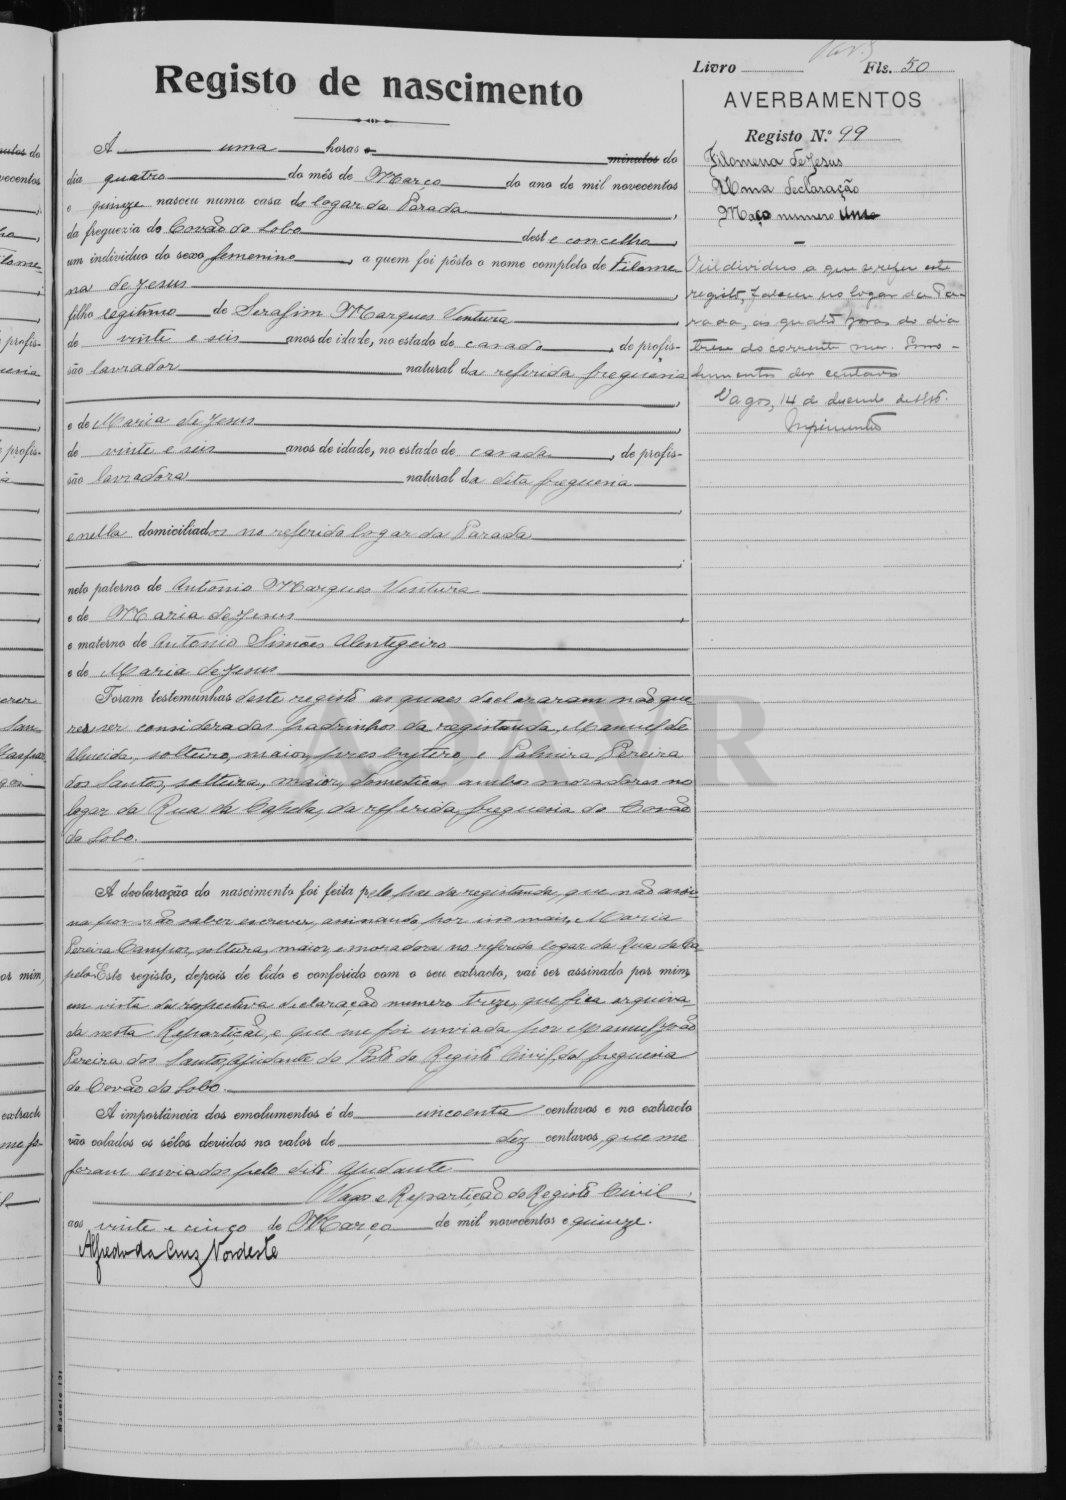 Livro Fls. 50
Registo de nascimento
AVERBAMENTOS
Registo N.º 99
Filomena de Jesus
Uma declaração
Maço numero um
A uma horas e minutos do
dia quatro do mês de Março do ano de mil novecentos
e quinze nasceu numa casa do logar da Parada,
da freguezia do Covão do Lobo deste concelho,
um individuo do sexo femenino, a quem foi pôsto o nome completo de Filome-
na de Jesus,
filho legitimo de Serafim Marques Ventura,
de vinte e seis anos de idade, no estado de casado, de profis-
são lavrador natural da referida freguesia
e de Maria de Jesus,
de vinte e seis anos de idade, no estado de casada, de profis-
são lavradora natural da dita freguesia
e nella domiciliados no referido logar da Parada
neto paterno de António Marques Ventura
e de Maria de Jesus,
e materno de António Simões Alentegeiro
e de Maria de Jesus
Foram testemunhas deste registo as quaes declararam não que-
rer ser consideradas padrinhos da registanda, Manuel de
Almeida, solteiro, maior, presbytero, e Palmira Pereira
dos Santos, solteira, maior, domestica, ambos moradores no
logar da Rua da Capela, da referida freguesia do Covão
do Lobo.
A declaração do nascimento foi feita pelo pae da registanda, que não assi-
na por não saber escrever, assinando por isso mais, Maria
Pereira Campos, solteira, maior, e moradora no referido logar da Rua da Ca
pela. Este registo, depois de lido e conferido com o seu extracto, vai ser assinado por mim,
em vista da respectiva declaração numero treze, que fica arquiva-
da nesta Repartição, e que me foi enviada por Manuel João
Pereira dos Santos, Ajudante do Posto do Registo Civil, da freguesia
do Covão do Lobo.
A importância dos emolumentos é de cincoenta centavos e no extracto
vão colados os sêlos devidos no valor de dez centavos, que me
foram enviados pelo dito Ajudante
Vagos e Repartição do Registo Civil,
aos vinte e cinco de Março de mil novecentos e quinze.
Alfredo da Cruz Nordeste
O individuo a que se refere este
registo, faleceu no logar da Pa-
rada, as quatro horas do dia
treze do corrente mez. Emo-
lumentos dez centavos
Vagos, 14 de dezembro de
Modelo 121
ADAVR